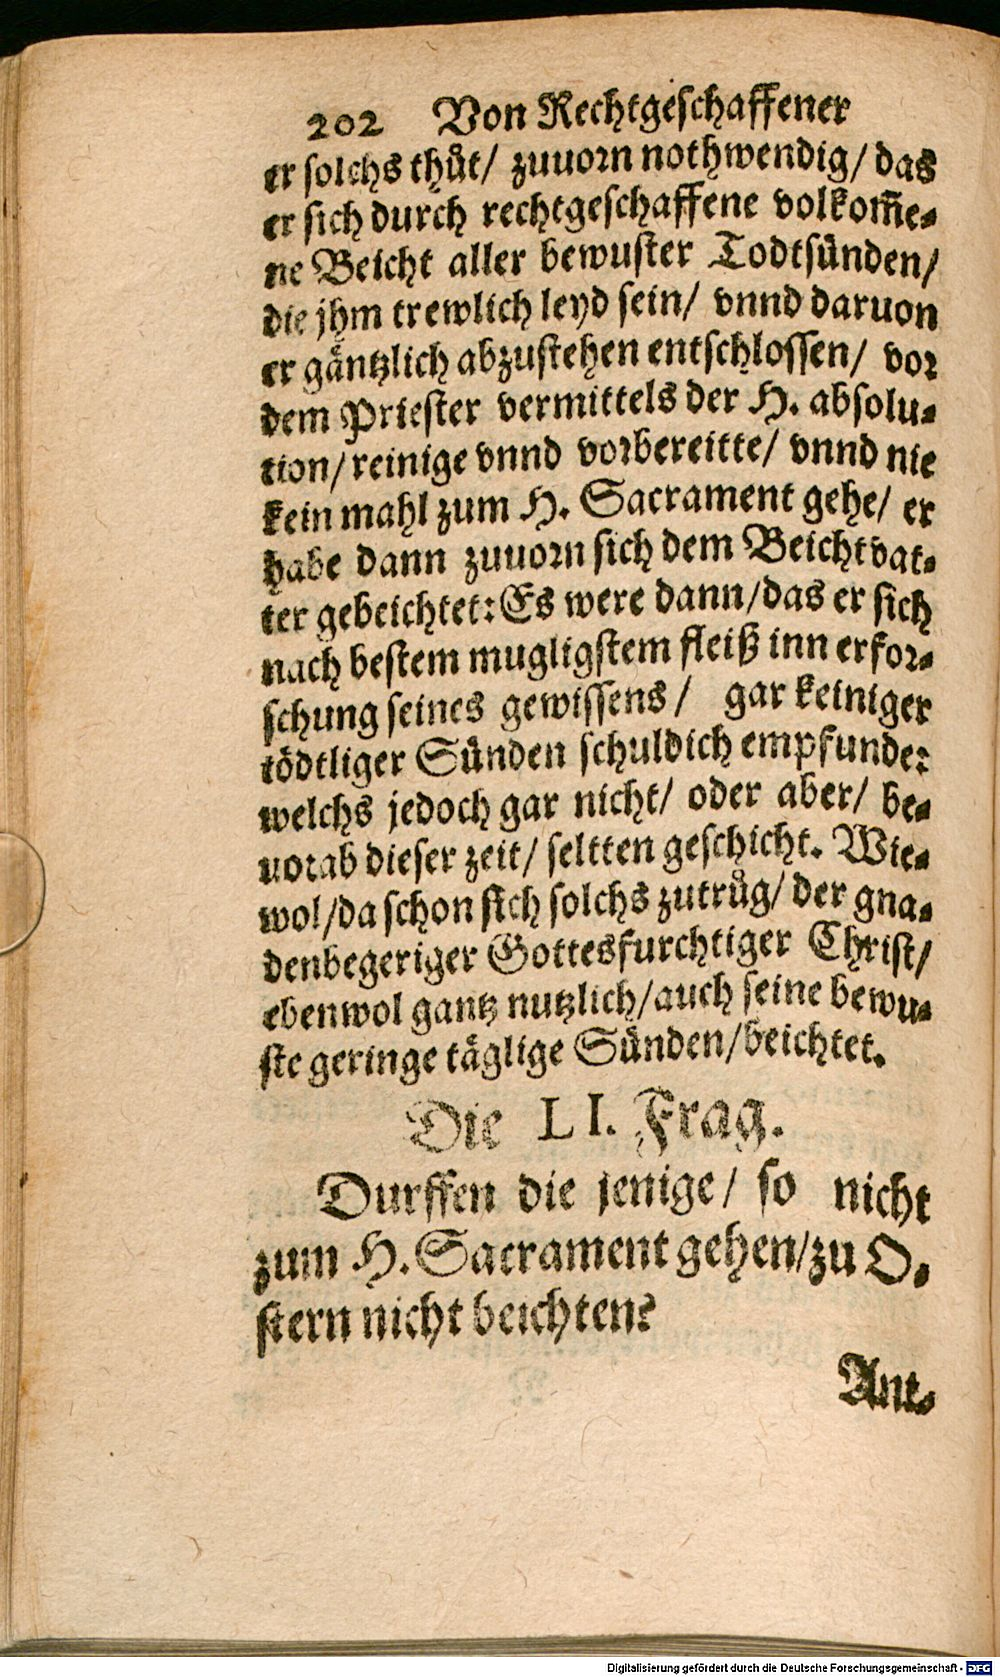 202 Von Rechtgeschaffener
er solchs thůt/ zuuorn nothwendig/ das
er sich durch rechtgeschaffene volkom̃e-
ne Beicht aller bewuster Todtsünden/
die jhm trewlich leyd sein/ vnnd daruon
er gäntzlich abzustehen entschlossen/ vor
dem Priester vermittels der H. absolu-
tion/ reinige vnnd vorbereitte/ vnnd nie
kein mahl zum H. Sacrament gehe/ er
habe dann zuuorn sich dem Beichtvat-
ter gebeichtet: Es were dann/ das er sich
nach bestem mugligstem fleiß inn erfor-
schung seines gewissens/ gar keiniger
tödtliger Sünden schuldich empfunde:
welchs jedoch gar nicht/ oder aber/ be-
uorab dieser zeit/ seltten geschicht. Wie-
wol/ da schon sich solchs zutrůg/ der gna-
denbegeriger Gottesfurchtiger Christ/
ebenwol gantz nutzlich/ auch seine bewu-
ste geringe täglige Sünden/ beichtet.
Die LI. Frag.
Durffen die jenige/ so nicht
zum H. Sacrament gehen/ zu O-
stern nicht beichten?
Ant-
Digitalisierung gefördert durch die Deutsche Forschungsgemeinschaft - DFG